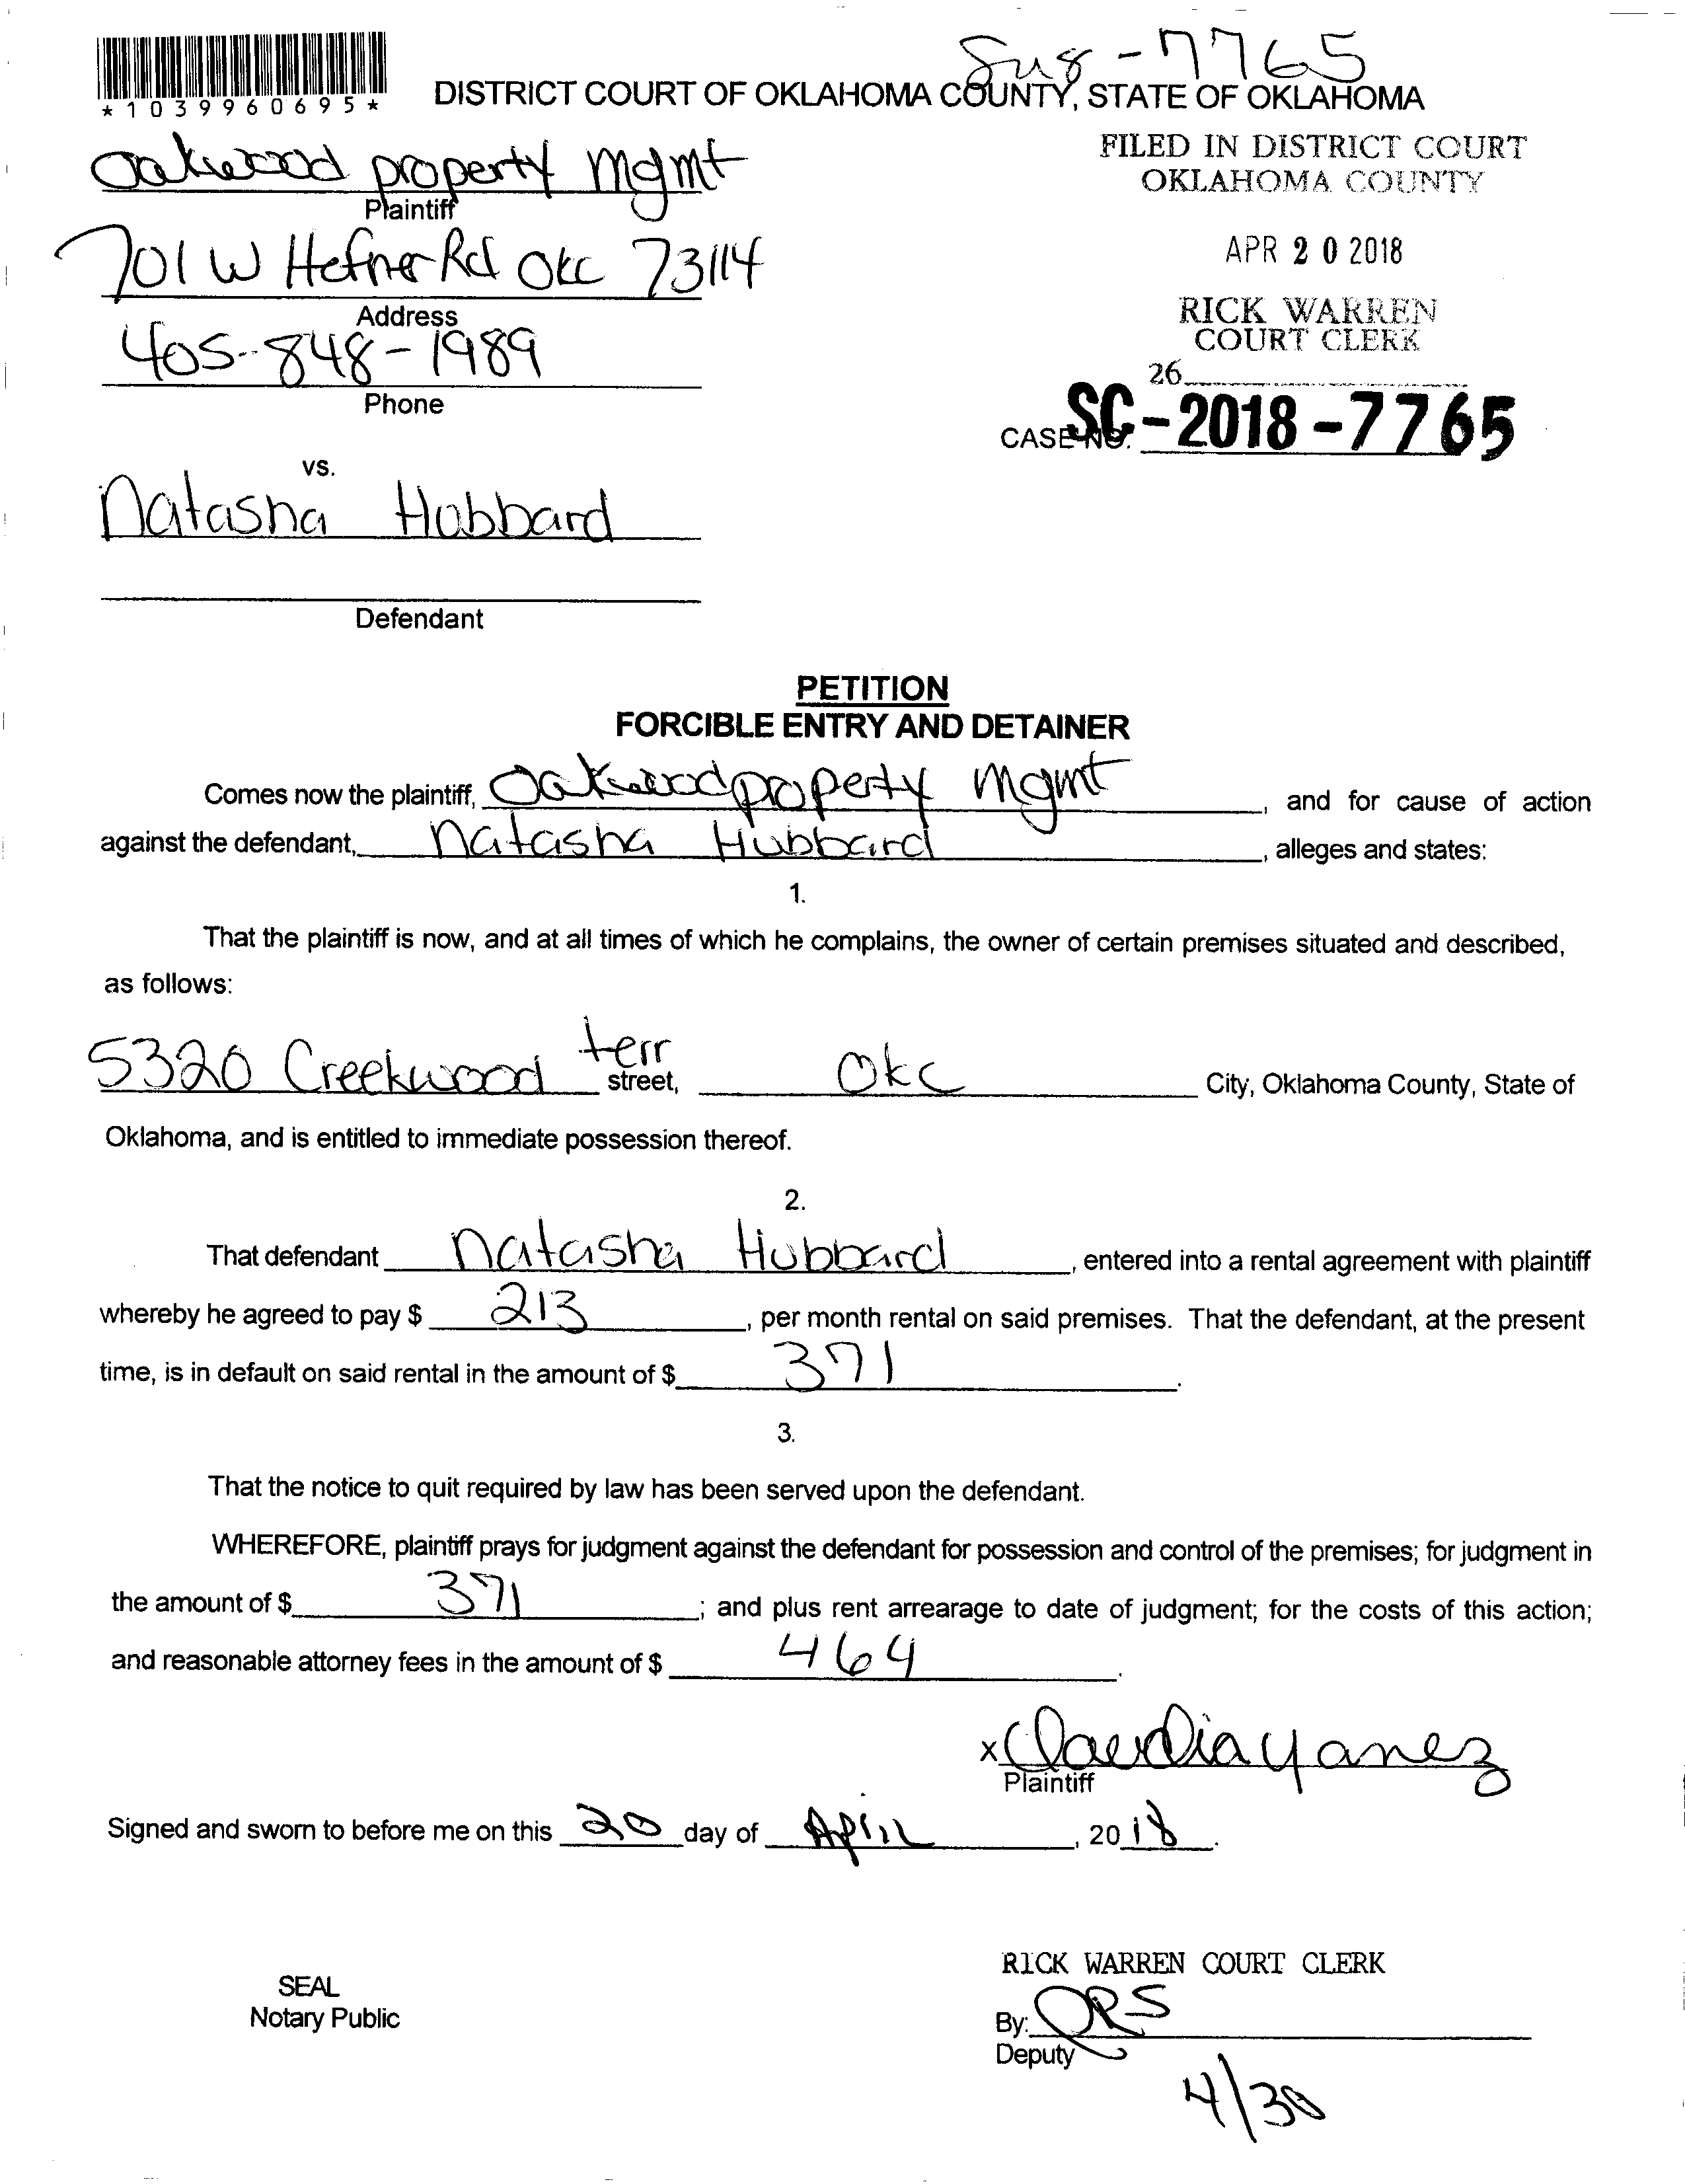 *1039960695*
DISTRICT COURT OF OKLAHOMA COUNTY, STATE OF OKLAHOMA
-7765
Oakwood property Mgmt
Plaintiff
FILED IN DISTRICT COURT
OKLAHOMA COUNTY
701 W Hefner Rd OKC 73114
Address
APR 20 2018
405-848-1989
Phone
RICK WARREN
COURT CLERK
26
CASE NO. SC-2018-7765
vs.
Natasha Hubbard
Defendant
PETITION
FORCIBLE ENTRY AND DETAINER
Comes now the plaintiff, Oakwood property Mgmt, and for cause of action
against the defendant, Natasha Hubbard, alleges and states:
1.
That the plaintiff is now, and at all times of which he complains, the owner of certain premises situated and described,
as follows:
5320 Creekwood terr street, OKC City, Oklahoma County, State of
Oklahoma, and is entitled to immediate possession thereof.
2.
That defendant Natasha Hubbard, entered into a rental agreement with plaintiff
whereby he agreed to pay $ 213, per month rental on said premises. That the defendant, at the present
time, is in default on said rental in the amount of $ 371.
3.
That the notice to quit required by law has been served upon the defendant.
WHEREFORE, plaintiff prays for judgment against the defendant for possession and control of the premises; for judgment in
the amount of $ 371; and plus rent arrearage to date of judgment; for the costs of this action;
and reasonable attorney fees in the amount of $ 464.
x Claudia Yanez
Plaintiff
Signed and sworn to before me on this 20 day of April, 2018.
RICK WARREN COURT CLERK
SEAL
Notary Public
By:
Deputy
4/30